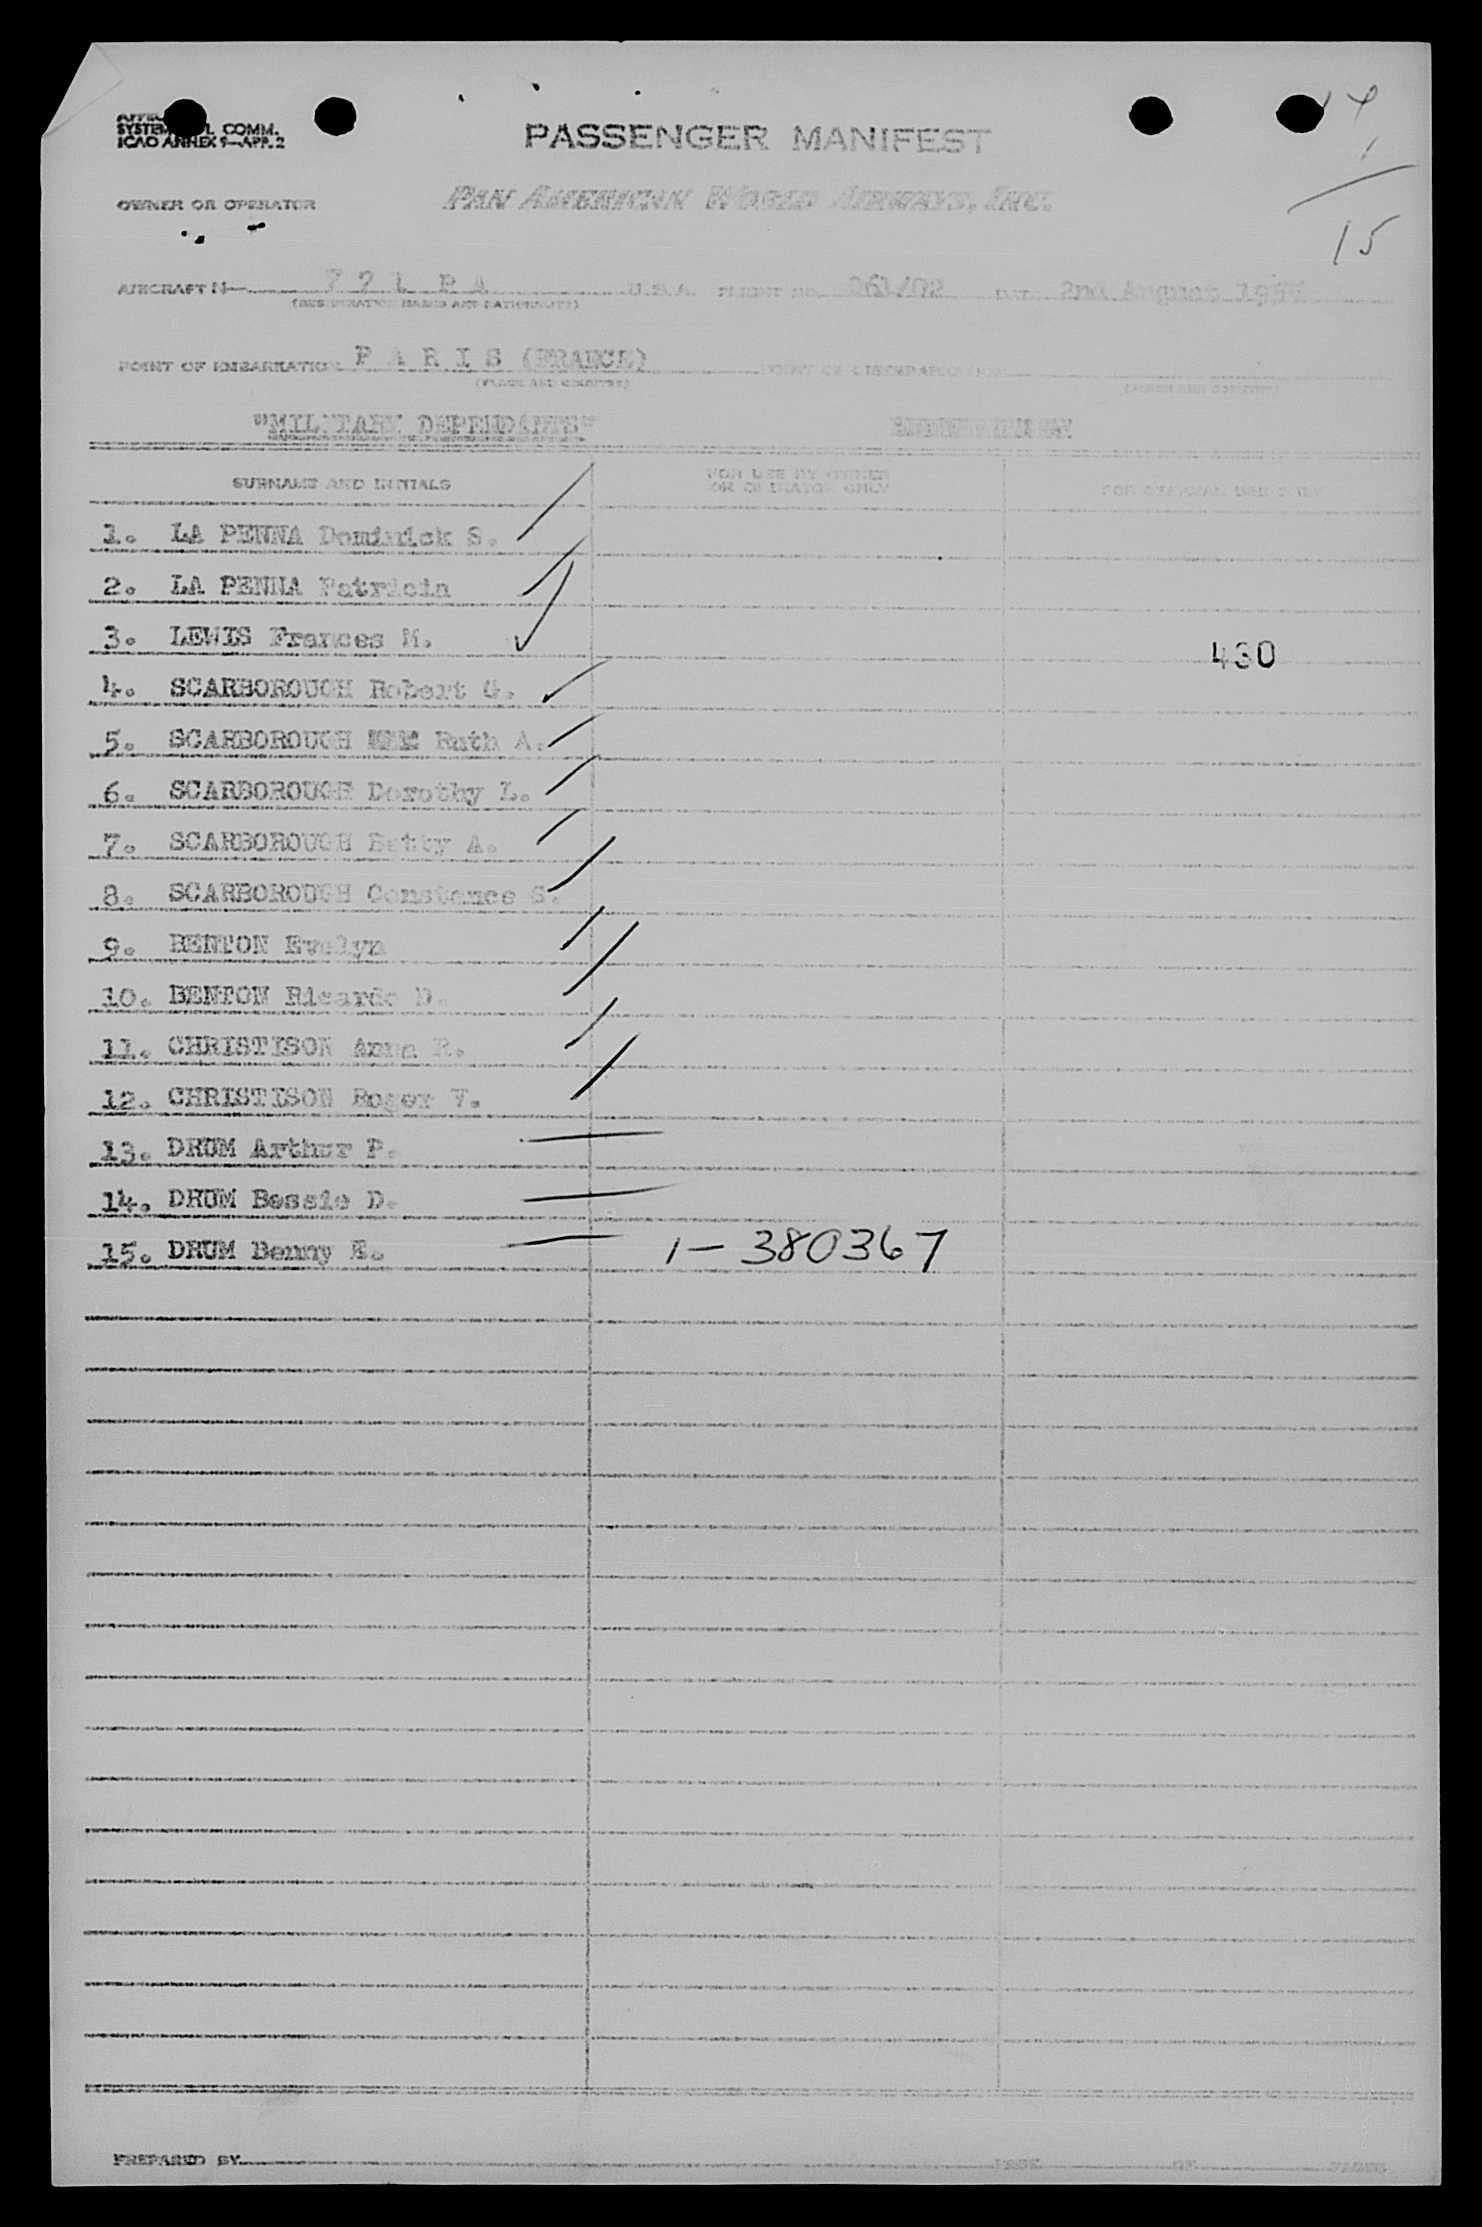 14
1
15
SYSTEM COMM.
ICAO ANNEX 9-APP. 2
PASSENGER MANIFEST
OWNER OR OPERATOR PAN AMERICAN WORLD AIRWAYS, INC.
AIRCRAFT N- 7 2 1 P A U.S.A. FLIGHT NO. 061/02 DATE 2nd August
POINT OF EMBARKATION P A R I S (FRANCE) POINT OF DISEMBARKATION
(PLACE AND COUNTRY) (PLACE AND COUNTRY)
"MILITARY DEPENDANTS"
SURNAME AND INITIALS FOR USE BY OWNER OR OPERATOR ONLY FOR OFFICIAL USE ONLY
1. LA PENNA Dominick S.
2. LA PENNA Patricia
3. LEWIS Frances M. 430
4. SCARBOROUGH Robert G.
5. SCARBOROUGH Ruth A.
6. SCARBOROUGH Dorothy L.
7. SCARBOROUGH Betty A.
8. SCARBOROUGH Constance S.
9. BENTON Evelyn
10. BENTON Ricardo D.
11. CHRISTISON Anna R.
12. CHRISTISON Roger V.
13. DRUM Arthur P.
14. DRUM Bessie D.
15. DRUM Benny E. 1-380367
PREPARED BY PAGE OF PAGES